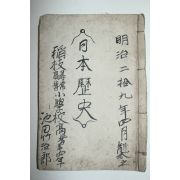 明治二拾九年四月製之
日本歴史
稲枝
小學校高等
池田竹治郎